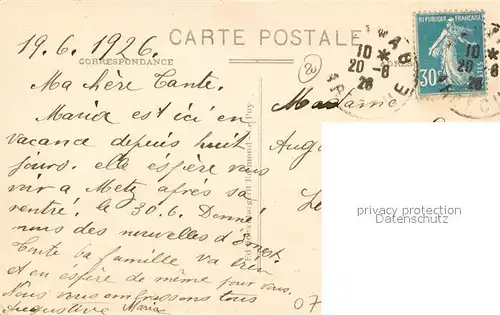 19.6.1926.
CARTE POSTALE
CORRESPONDANCE
Ma chère Tante.
Maria est ici en
vacance depuis huit
jours. elle espère vous
voir a Metz après sa
rentré, le 30.6. Donné
nous des nouvelles d'
Toute la famille va bien
et en espère de même pour vous.
Nous vous embrassons tous
Augustine Maria
Madame
Aug
RÉPUBLIQUE FRANÇAISE
30
10
20-6
26
10
20-6
26
07
privacy protection
VERDOHL